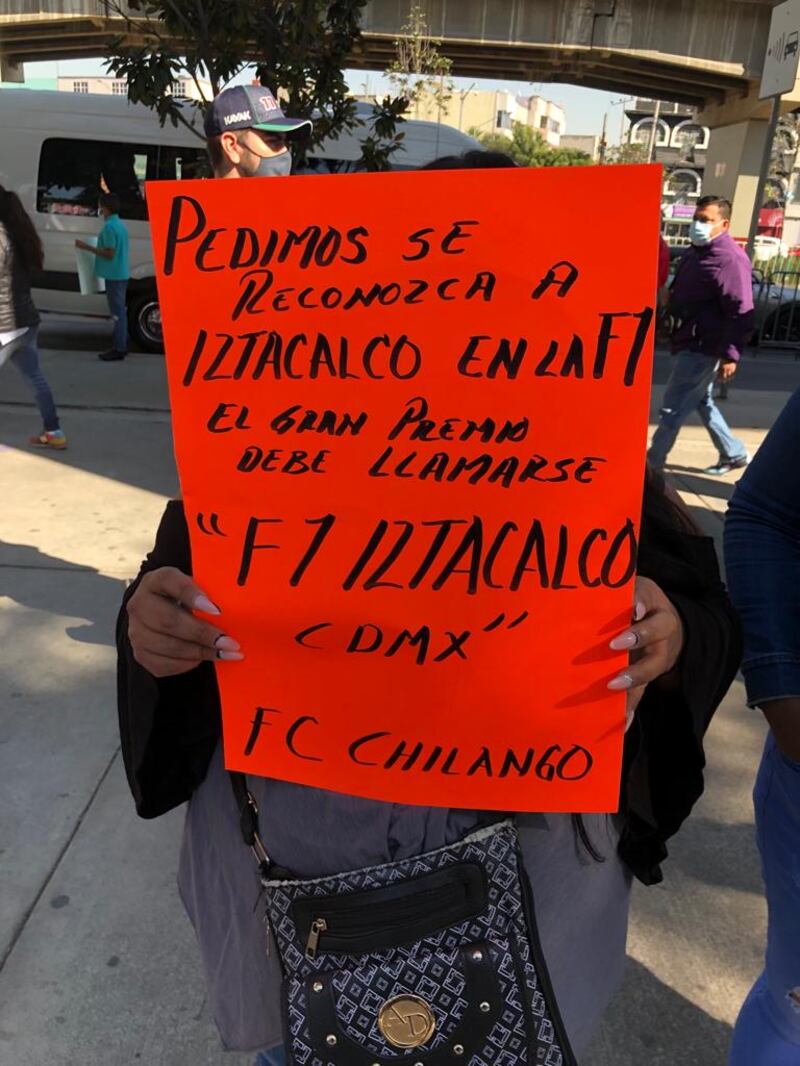 KAVAK 11
PEDIMOS SE
RECONOZCA A
IZTACALCO EN LA F1
EL GRAN PREMIO
DEBE LLAMARSE
"F1 IZTACALCO
CDMX"
FC CHILANGO
AD